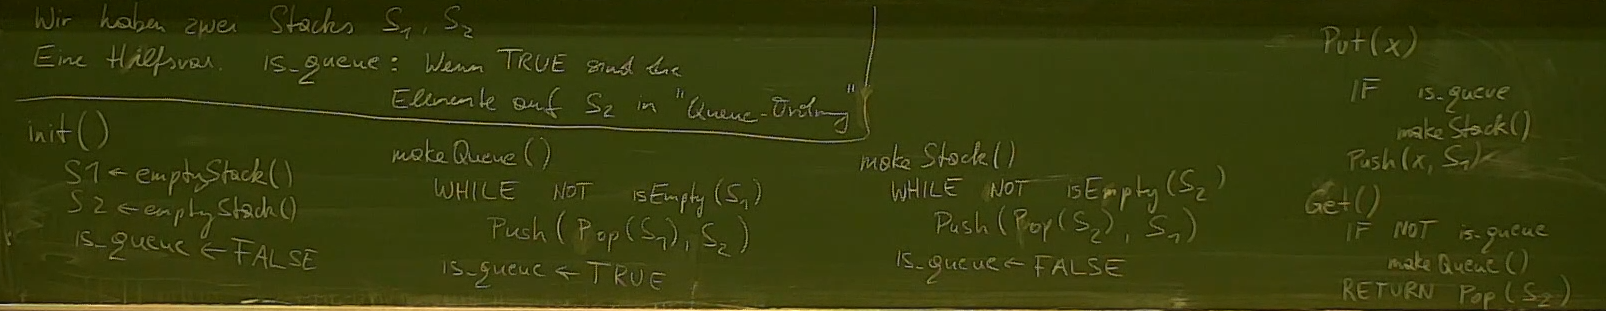 Wir haben zwei Stacks S₁, S₂
Eine Hilfsvar. is_queue: Wenn TRUE sind die
Elemente auf S₂ in "Queue-Ordnung"
init()
S1 ← emptyStack()
S2 ← emptyStack()
is_queue ← FALSE
makeQueue()
WHILE NOT isEmpty(S₁)
Push(Pop(S₁), S₂)
is_queue ← TRUE
makeStack()
WHILE NOT isEmpty(S₂)
Push(Pop(S₂), S₁)
is_queue ← FALSE
Put(x)
IF is_queue
makeStack()
Push(x, S₁)
Get()
IF NOT is_queue
makeQueue()
RETURN Pop(S₂)